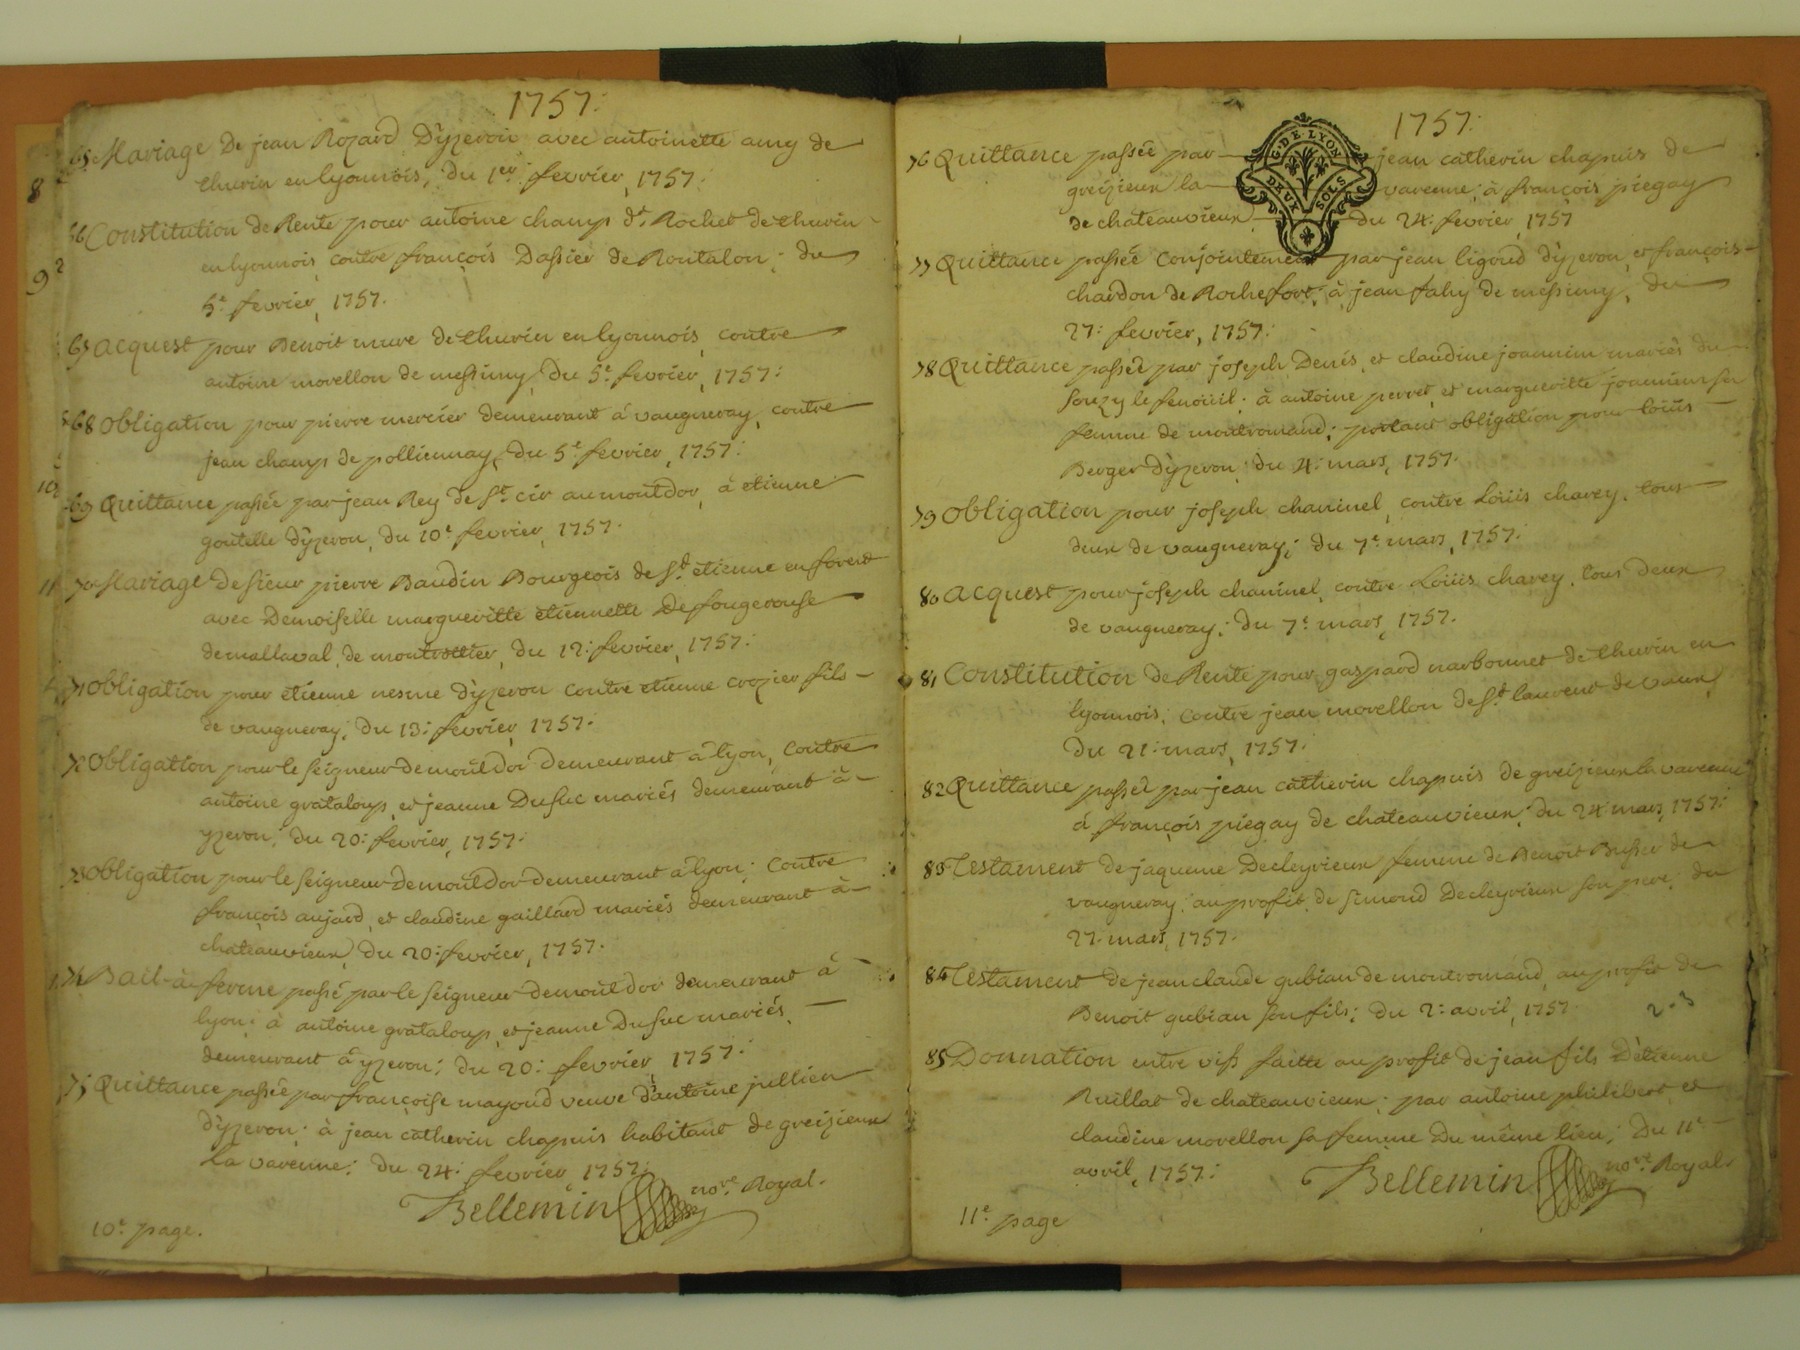 1757.
65 Mariage De jean Rozard D'yzeron avec antoinette amy de
thurin en lyonnois, du 1er fevrier, 1757.
66 Constitution de Rente pour antoine champ dt. Rochet de thurin
en lyonnois, contre françois Dassier de Rontalon; du
5e. fevrier, 1757.
67 acquest pour Benoit mure de thurin en lyonnois, contre
antoine morellon de messimy, Du 5e. fevrier, 1757:
68 obligation pour pierre mercier demeurant à vaugneray, contre
jean champ de polliennay, Du 5e. fevrier, 1757.
69 Quittance passée par jean Rey de St. cir au montdor, à etienne
goutelle d'yzeron, du 10e fevrier, 1757.
70 Mariage de sieur pierre Baudin Bourgeois de St. etienne en forest
avec Demoiselle margueritte etiennette De fougerouse
de mallaval, de montrottier, du 12: fevrier, 1757:
71 obligation pour etienne nesme d'yzeron contre etienne crozier fils
de vaugneray; Du 13: fevrier, 1757:
72 obligation pour le seigneur de montdor demeurant à lyon, Contre
antoine grataloup, et jeanne Dusuc mariés demeurant à
yzeron; du 20: fevrier, 1757:
73 obligation pour le seigneur de montdor demeurant à lyon; Contre
françois aujard, et claudine gaillard mariés demeurant à
chateauvieux, Du 20: fevrier, 1757.
74 Bail-à-ferme passé par le seigneur de montdor demeurant à
lyon; à antoine grataloup, et jeanne Dusuc mariés
demeurant à yzeron; du 20: fevrier, 1757:
75 Quittance passée par françoise mayoud veuve d'antoine jullien
D'yzeron; à jean catherin chapuis habitant de greizieux
la varenne; du 24: fevrier, 1757:
Bellemin nore. Royal.
10e. page.
1757.
76 Quittance passée par jean catherin chapuis de
greizieux la varenne; à françois piegay
de chateauvieux, du 24: fevrier, 1757
G. DE LYON
DEUX SOLS
77 Quittance passée Conjointement par jean ligoud d'yzeron, et françois
chardon de Rochefort; à jean fahy de messimy, du
27: fevrier, 1757:
78 Quittance passée par joseph Denis, et claudine joannin mariés du
souzy le fenoüil; à antoine perret, et margueritte joannin sa
femme de montromand; portant obligation pour loüis
Berger d'yzeron; du 4: mars, 1757.
79 obligation pour joseph chaninel, contre Loüis charey, tous
deux de vaugneray; du 7e. mars, 1757:
80 acquest pour joseph chaninel, contre Loüis charey, tous deux
de vaugneray; du 7e. mars, 1757.
81 Constitution de Rente pour gaspard narbonnet de thurin en
lyonnois; contre jean morellon de St. laurent de vaux,
Du 21: mars, 1757:
82 Quittance passée par jean catherin chapuis de greizieux la varenne
à françois piegay de chateauvieux; du 24: mars, 1757:
83 Testament de jaqueme Decleyrieux femme de Benoit Busser de
vaugneray; au profit de simond Decleyrieux son pere; du
27. mars, 1757.
84 Testament de jean claude gubian de montromand, au profit de
Benoit gubian son fils; du 2: avril, 1757
2-3
85 Donnation entre vifs faitte au profit de jean fils D'etienne
Ruillat de chateauvieux; par antoine philibert, et
claudine morellon sa femme Du même lieu; Du 11e
avril, 1757:
Bellemin nore. Royal.
11e. page